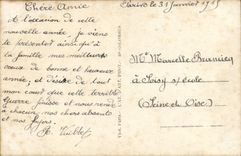 Paris le 31 Janvier 1915
Chère Amie
A l'occasion de cette
nouvelle année, je viens
te présenter ainsi qu'à
ta famille mes meilleurs
vœux de bonne et heureuse
année, et désire de tout
mon cœur que cette terrible
guerre finisse et nous rende
à chacun nos chers absents
et nos foyers.
Mlle Marcelle
à Soisy s/ école
(Seine et Oise)